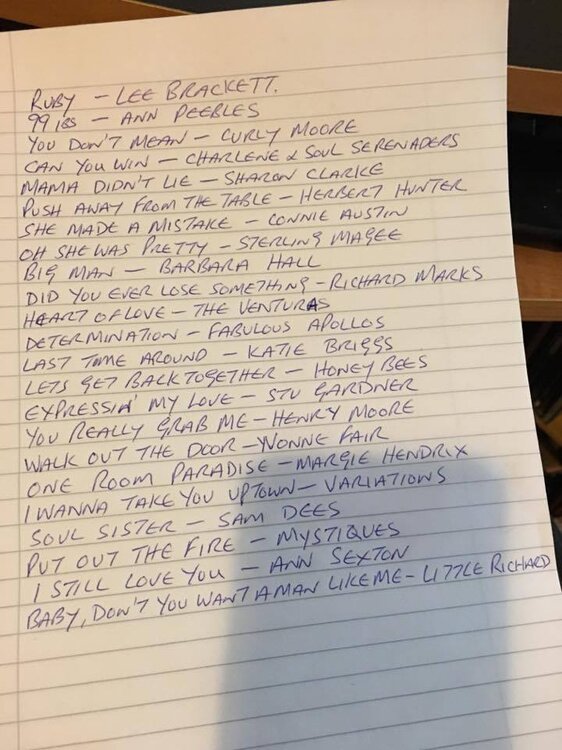 RUBY - LEE BRACKETT.
99 lbs - ANN PEEBLES
YOU DON'T MEAN - CURLY MOORE
CAN YOU WIN - CHARLENE & SOUL SERENADERS
MAMA DIDN'T LIE - SHARON CLARKE
PUSH AWAY FROM THE TABLE - HERBERT HUNTER
SHE MADE A MISTAKE - CONNIE AUSTIN
OH SHE WAS PRETTY - STERLING MAGEE
BIG MAN - BARBARA HALL
DID YOU EVER LOSE SOMETHING - RICHARD MARKS
HEART OF LOVE - THE VENTURAS
DETERMINATION - FABULOUS APOLLOS
LAST TIME AROUND - KATIE BRIGGS
LETS GET BACK TOGETHER - HONEY BEES
EXPRESSIN' MY LOVE - STU GARDNER
YOU REALLY GRAB ME - HENRY MOORE
WALK OUT THE DOOR - YVONNE FAIR
ONE ROOM PARADISE - MARGIE HENDRIX
I WANNA TAKE YOU UPTOWN - VARIATIONS
SOUL SISTER - SAM DEES
PUT OUT THE FIRE - MYSTIQUES
I STILL LOVE YOU - ANN SEXTON
BABY, DON'T YOU WANT A MAN LIKE ME - LITTLE RICHARD